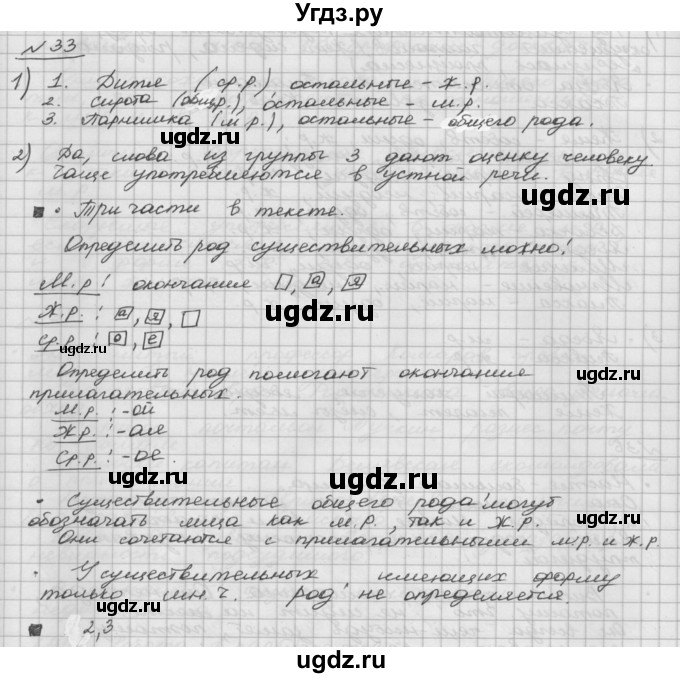 Угдз.ру
№33
1) 1. Дитя (ср.р.) остальные – ж.р.
2. Сирота (общ.р.), остальные – м.р.
3. Парнишка (м.р.), остальные – общего рода.
2) Да, слова из группы 3 дают оценку человеку.
Чаще употребляются в устной речи.
• Три части в тексте.
Определить род существительных можно:
М.р.: окончания □, а, я
Ж.р.: а, я, □
Ср.р.: о, е
Определить род помогают окончания
прилагательных.
М.р.: -ой
Ж.р.: -ая
Ср.р.: -ое.
• Существительные общего рода могут
обозначать лица как м.р., так и ж.р.
Они сочетаются с прилагательными м.р. и ж.р.
• У существительных, имеющих форму
только мн.ч. род не определяется.
2,3
uгдз.ru
uгдз.ru
uгдз.ru
uгдз.ru
uгдз.ru
uгдз.ru
uгдз.ru
uгдз.ru
uгдз.ru
uгдз.ru
uгдз.ru